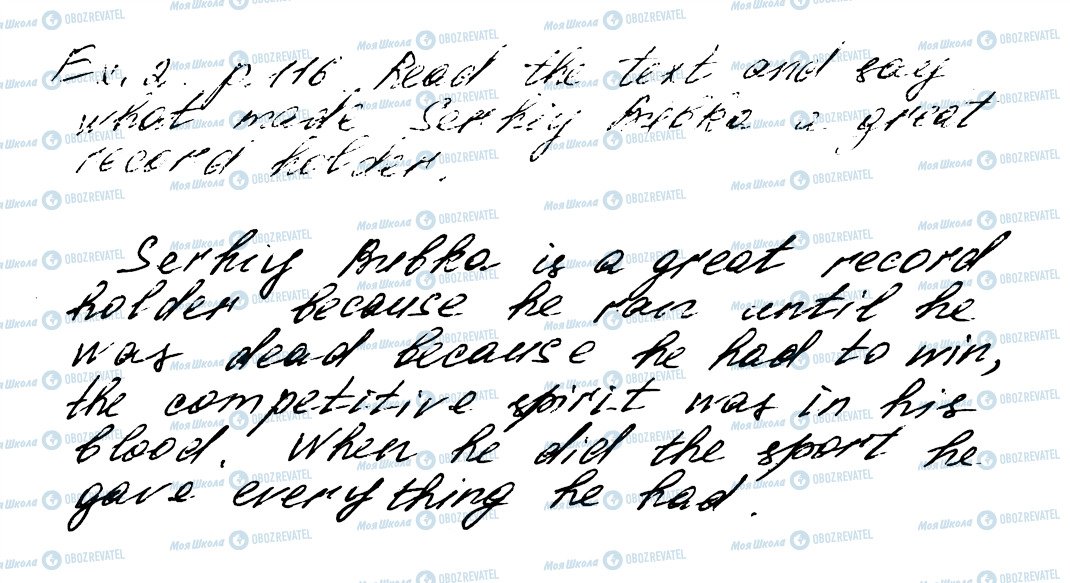 Ex. 2. p. 116 Read the text and say
what made Serhiy Bubka a great
record holder.
Serhiy Bubka is a great record
holder because he ran until he
was dead because he had to win,
the competitive spirit was in his
blood. When he did the sport he
gave everything he had.